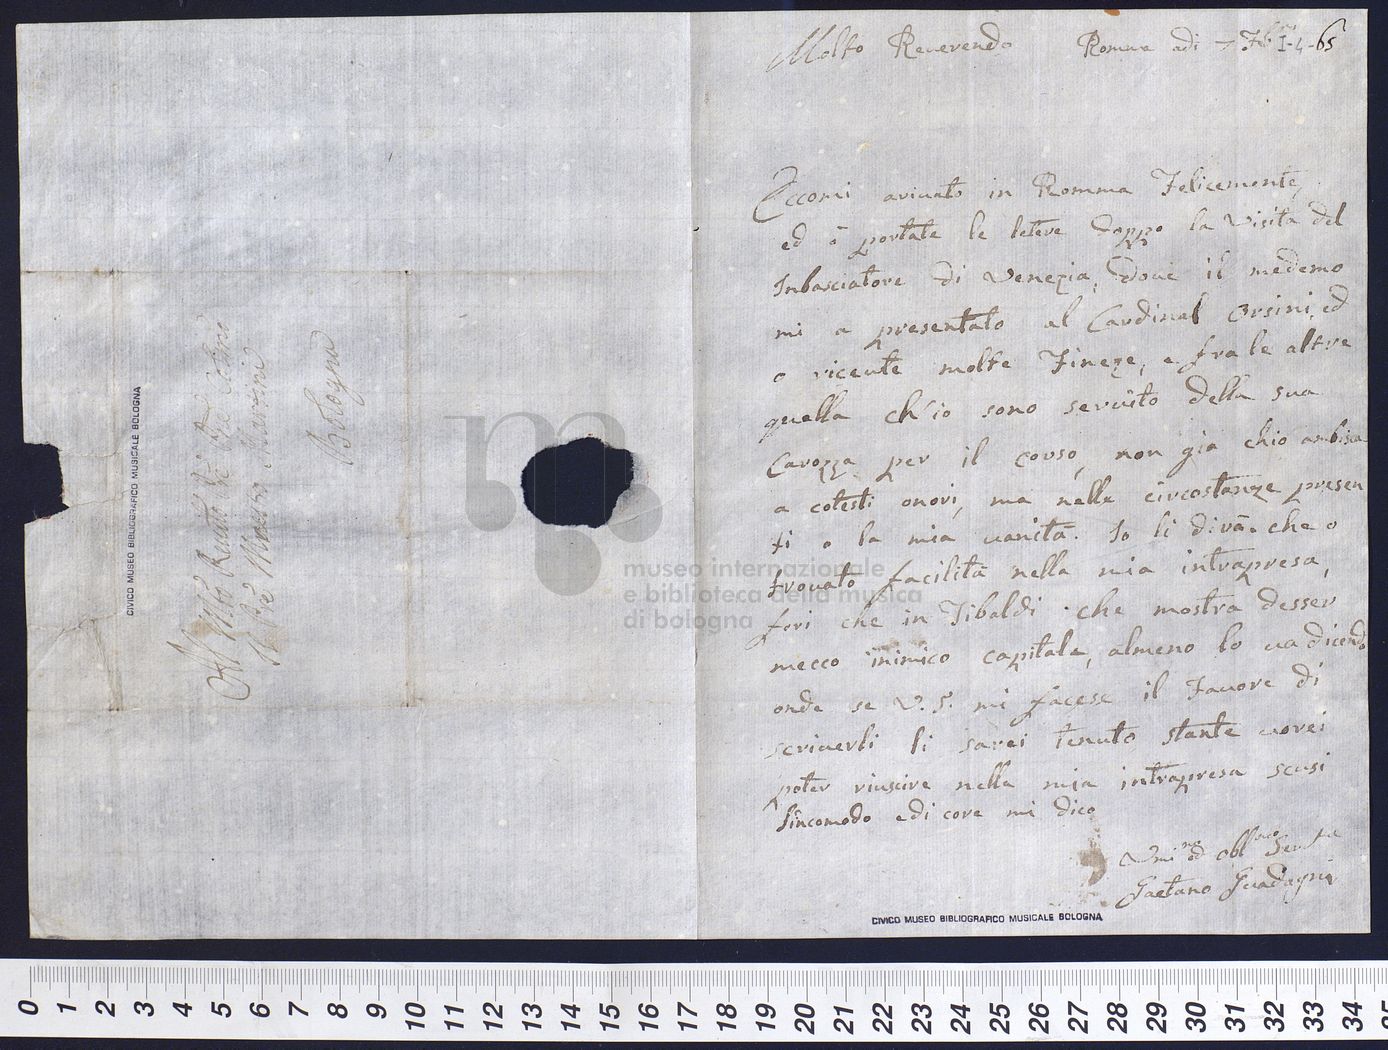 Molto Reverendo Romma adi 7
I-4-65
Eccomi arivato in Romma Felicemente,
ed ò portate le letere doppo la Visita del
Inbasciatore di Venezia, dove il medemo
mi a presentato al Cardinal Orsini, ed
o riceute molte Fineze, e fra le altre
quella ch'io sono servito della sua
Carozza per il corso, non gia chio ambisca
a cotesti onori, ma nelle circostanze presen
ti o la mia vanità. Io li dirà che o
trovato facilità nella mia intrapresa,
fori che in Tibaldi che mostra desser
mecco inimico capitale, almeno lo va dicendo
onde se V.S. mi facese il Favore di
scriverli li sarei tenuto stante vorei
poter riuscire nella mia intrapresa scusi
l'incomodo e di core mi dico
Vmi.mo ed obb.mo
Gaetano Guadagni
CIVICO MUSEO BIBLIOGRAFICO MUSICALE BOLOGNA
Martini
Bologna
CIVICO MUSEO BIBLIOGRAFICO MUSICALE BOLOGNA
museo internazionale
e biblioteca della musica
di bologna
0 1 2 3 4 5 6 7 8 9 10 11 12 13 14 15 16 17 18 19 20 21 22 23 24 25 26 27 28 29 30 31 32 33 34